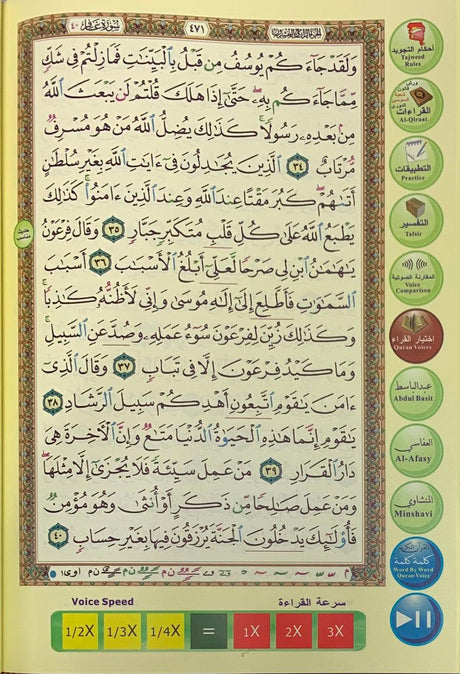 سورة غافر ٤٠
٤٧١
الجزء الرابع والعشرون
وَلَقَدْ جَاءَكُمْ يُوسُفُ مِن قَبْلُ بِالْبَيِّنَاتِ فَمَا زِلْتُمْ فِي شَكٍّ
مِّمَّا جَاءَكُم بِهِ حَتَّىٰ إِذَا هَلَكَ قُلْتُمْ لَن يَبْعَثَ اللَّهُ
مِن بَعْدِهِ رَسُولًا كَذَٰلِكَ يُضِلُّ اللَّهُ مَنْ هُوَ مُسْرِفٌ
مُّرْتَابٌ ٣٤ الَّذِينَ يُجَادِلُونَ فِي ءَايَاتِ اللَّهِ بِغَيْرِ سُلْطَانٍ
أَتَاهُمْ كَبُرَ مَقْتًا عِندَ اللَّهِ وَعِندَ الَّذِينَ ءَامَنُوا كَذَٰلِكَ
يَطْبَعُ اللَّهُ عَلَىٰ كُلِّ قَلْبِ مُتَكَبِّرٍ جَبَّارٍ ٣٥ وَقَالَ فِرْعَوْنُ
يَاهَامَانُ ابْنِ لِي صَرْحًا لَّعَلِّي أَبْلُغُ الْأَسْبَابَ ٣٦ أَسْبَابَ
السَّمَاوَاتِ فَأَطَّلِعَ إِلَىٰ إِلَٰهِ مُوسَىٰ وَإِنِّي لَأَظُنُّهُ كَاذِبًا
وَكَذَٰلِكَ زُيِّنَ لِفِرْعَوْنَ سُوءُ عَمَلِهِ وَصُدَّ عَنِ السَّبِيلِ
وَمَا كَيْدُ فِرْعَوْنَ إِلَّا فِي تَبَابٍ ٣٧ وَقَالَ الَّذِي
ءَامَنَ يَاقَوْمِ اتَّبِعُونِ أَهْدِكُمْ سَبِيلَ الرَّشَادِ ٣٨
يَاقَوْمِ إِنَّمَا هَٰذِهِ الْحَيَوٰةُ الدُّنْيَا مَتَاعٌ وَإِنَّ الْآخِرَةَ هِيَ
دَارُ الْقَرَارِ ٣٩ مَنْ عَمِلَ سَيِّئَةً فَلَا يُجْزَىٰ إِلَّا مِثْلَهَا
وَمَنْ عَمِلَ صَالِحًا مِّن ذَكَرٍ أَوْ أُنثَىٰ وَهُوَ مُؤْمِنٌ
فَأُولَٰئِكَ يَدْخُلُونَ الْجَنَّةَ يُرْزَقُونَ فِيهَا بِغَيْرِ حِسَابٍ ٤٠
أحكام التجويد
Tajweed
Rules
القراءات
Al-Qiraat
التطبيقات
Practice
التفسير
Tafsir
المقارنة الصوتية
Voice
Comparison
اختيار القراء
Quran Voices
عبدالباسط
Abdul Basit
العفاسي
Al-Afasy
المنشاوي
Minshavi
كلمة كلمة
Word By Word
Quran Voice
Voice Speed
سرعة القراءة
1/2X 1/3X 1/4X = 1X 2X 3X